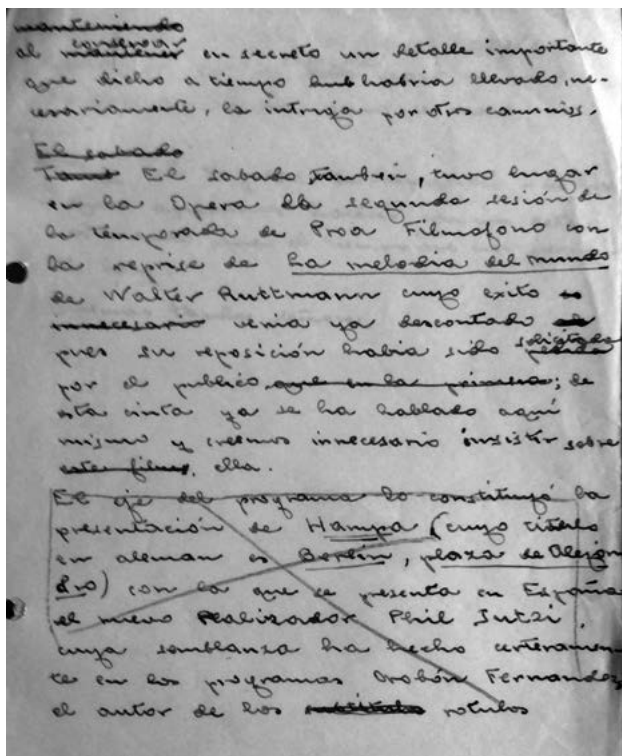 manteniendo
al mantener conservar en secreto un detalle importante
que dicho a tiempo habria llevado, ne-
cesariamente, la intriga por otros caminos.
El sabado
El sabado, tambien, tuvo lugar
en la Opera la segunda sesión de
la temporada de Proa Filmofono con
la reprise de La melodia del mundo
de Walter Ruttmann cuyo exito
innecesario venia ya descontado
pues su reposición habia sido pedida solicitada
por el publico que en la primera; de
esta cinta ya se ha hablado aquí
mismo y creemos innecesario insistir sobre
este films. ella.
El eje del programa lo constituyó la
presentación de Hampa (cuyo titulo
en aleman es Berlin, plaza de Alejan
dro) con la que se presenta en España
el nuevo Realizador Phil Jutzi,
cuya semblanza ha hecho certeramen-
te en los programas Orobón Fernandez
el autor de los subtitulos rotulos